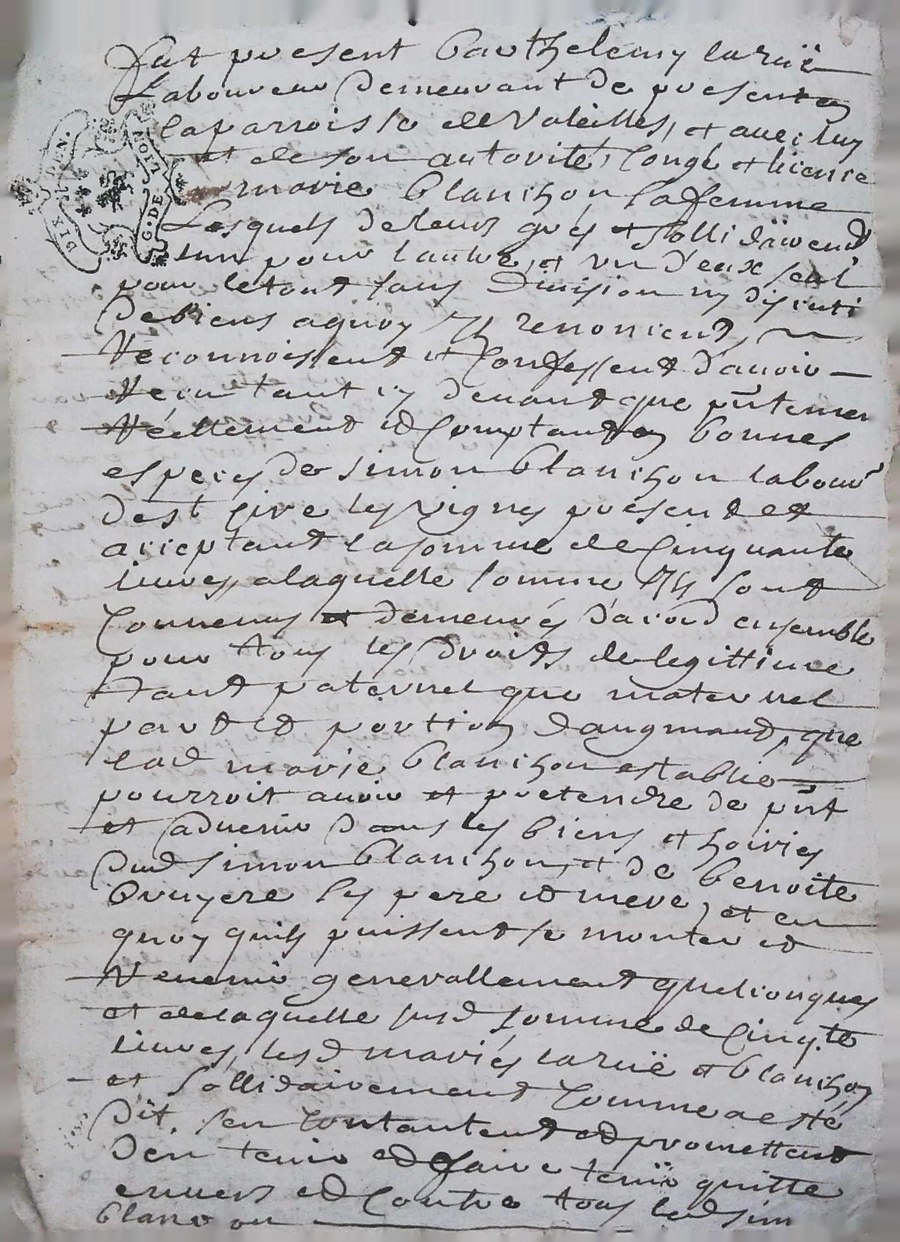 Fut present Barthelemy laruë
Laboureur demeurant de present en
la parroisse de Valeilles, et avec luy
et de son autorité, Congé et licence
marie blanchon sa femme
Lesquels de leurs grés et sollidairement
lun pour lautre, et un d'eux seul
pour le tout sans Division ny discuti
De biens a quoy ils renoncent,
Reconnoissent et Confessent d'avoir
Receu tant cy devant que pntemen
Réellement et Comptant en bonnes
especes de simon blanchon labour
de st Cire les vignes présent et
acceptant la somme de Cinquante
livres, a laquelle somme ils sont
Convenus et demeurés d'acord ensemble
pour tous les droits de legittime
tant paternel que maternel
part et portion daugmand, que
lad marie blanchon establie
pourroit avoir et pretendre de pnt
et advenir dans les biens et hoiries
dud simon blanchon, et de benoite
bruyere ses pere et mere, et en
quoy quils puissent se monter et
Revenir generallement quelconques
et de laquelle susd somme de Cinq.te
livres, lesd mariés laruë et blanchon
et sollidairement Comme a esté
Dit, sen Contantent et promettent
D'en tenir et faire tenir quitte
envers et Contre tous led sim
blanchon
DIX DEN.
G. DE MOU